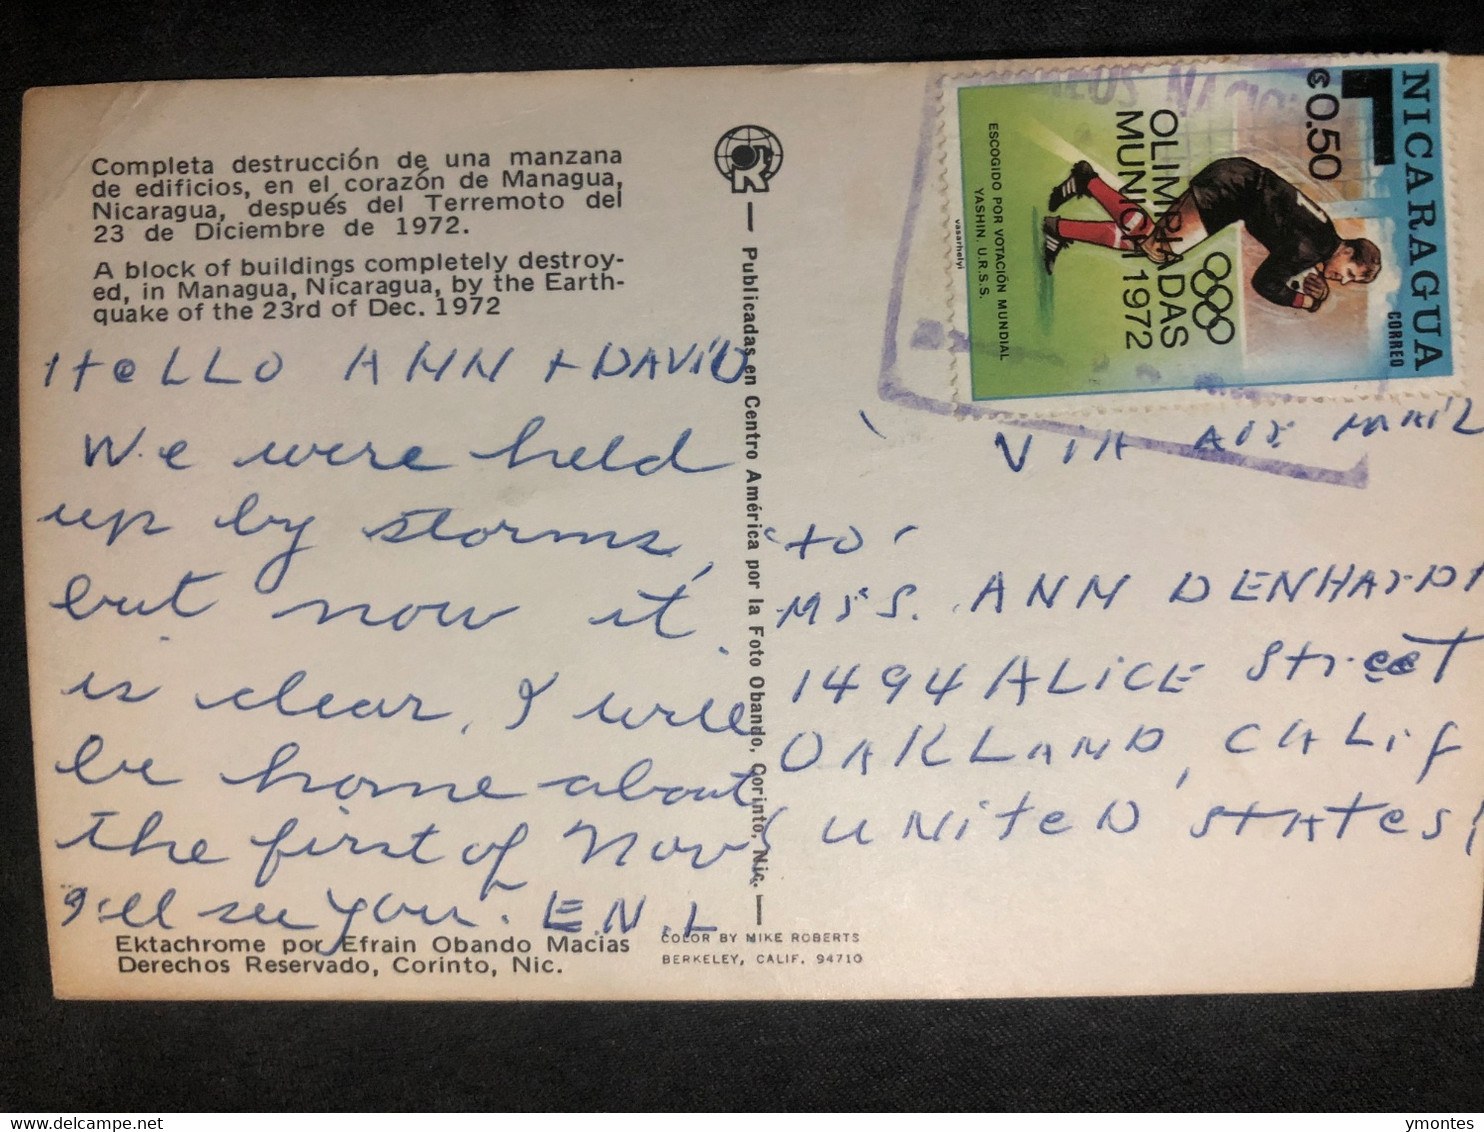 Completa destrucción de una manzana
de edificios, en el corazón de Managua,
Nicaragua, después del Terremoto del
23 de Diciembre de 1972.
A block of buildings completely destroy-
ed, in Managua, Nicaragua, by the Earth-
quake of the 23rd of Dec. 1972
HeLLO ANN + DAViD
We were held
up by storms,
but now it
is clear, I will
be home about
the first of Nov
I'll see you. E.N.L
Ektachrome por Efrain Obando Macias
Derechos Reservado, Corinto, Nic.
Publicadas en Centro América por la Foto Obando, Corinto, Nic.
COLOR BY MIKE ROBERTS
BERKELEY, CALIF. 94710
NICARAGUA
CORREO
₡0.50
OLIMPIADAS
MUNICH 1972
ESCOGIDO POR VOTACIÓN MUNDIAL
YASHIN. U.R.S.S.
vasarhelyi
VIA AIR MAIL
to
ANN DENHARDT
1494 ALiCE Street
OAKLAND, CALif
UNiteD States
ymontes